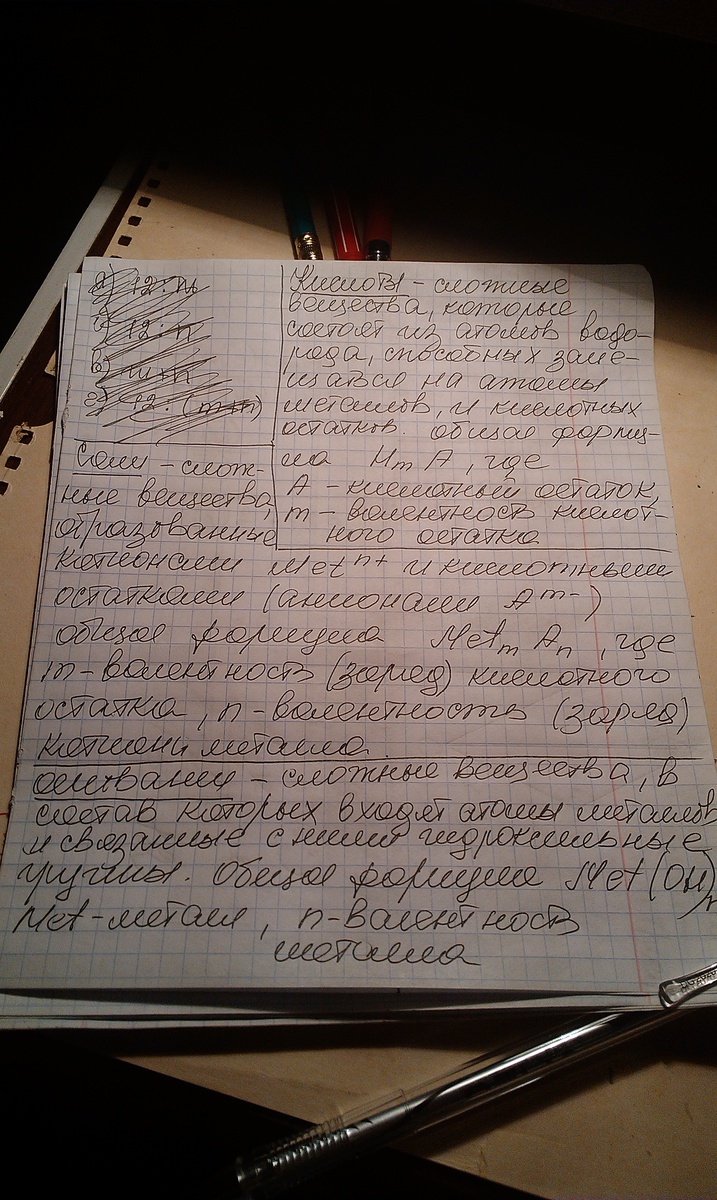 а) 12:m
б) 12:n
в) m+n
г) 12:(m+n)
Кислоты – сложные
вещества, которые
состоят из атомов водо-
рода, способных заме-
щаться на атомы
металлов, и кислотных
остатков. общая форму-
ла HmA, где
A – кислотный остаток,
m – валентность кислот-
ного остатка
Соли – слож-
ные вещества,
образованные
катионами Metⁿ⁺ и кислотными
остатками (анионами Aᵐ⁻)
общая формула MetmAn, где
m – валентность (заряд) кислотного
остатка, n – валентность (заряд)
катиона металла.
основания – сложные вещества, в
состав которых входят атомы металлов
и связанные с ними гидроксильные
группы. Общая формула Met(OH)n
Met – металл, n – валентность
металла